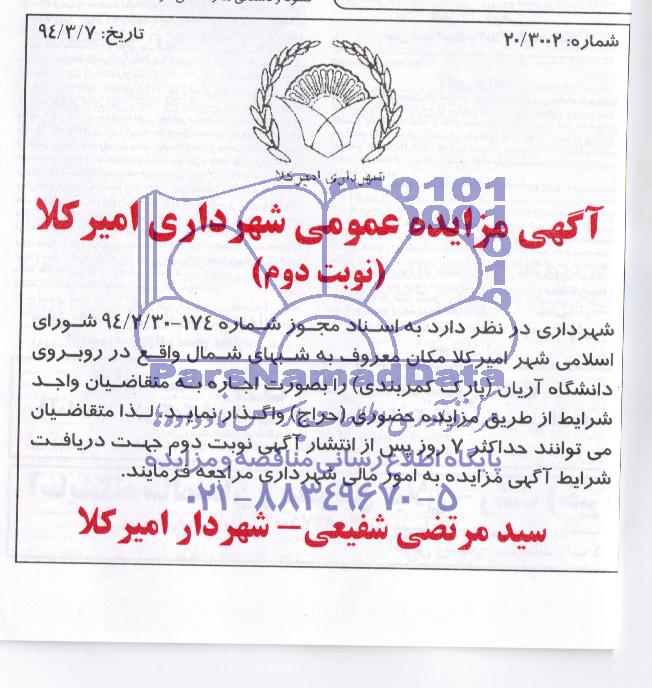 شماره: ۲۰/۳۰۰۲
تاریخ: ۹۴/۳/۷
شهرداری امیرکلا
آگهی مزایده عمومی شهرداری امیرکلا
(نوبت دوم)
شهرداری در نظر دارد به اسناد مجوز شماره ۱۷۴-۹۴/۲/۳۰ شورای
اسلامی شهر امیرکلا مکان معروف به شبهای شمال واقع در روبروی
دانشگاه آریان (پارک کمربندی) را بصورت اجاره به متقاضیان واجد
شرایط از طریق مزایده حضوری (حراج) واگذار نماید. لذا متقاضیان
می توانند حداکثر ۷ روز پس از انتشار آگهی نوبت دوم جهت دریافت
شرایط آگهی مزایده به امور مالی شهرداری مراجعه فرمایند.
سید مرتضی شفیعی – شهردار امیرکلا
ParsNamadData
پایگاه اطلاع رسانی مناقصه و مزایده
۰۲۱-۸۸۳۴۹۶۷۰-۵